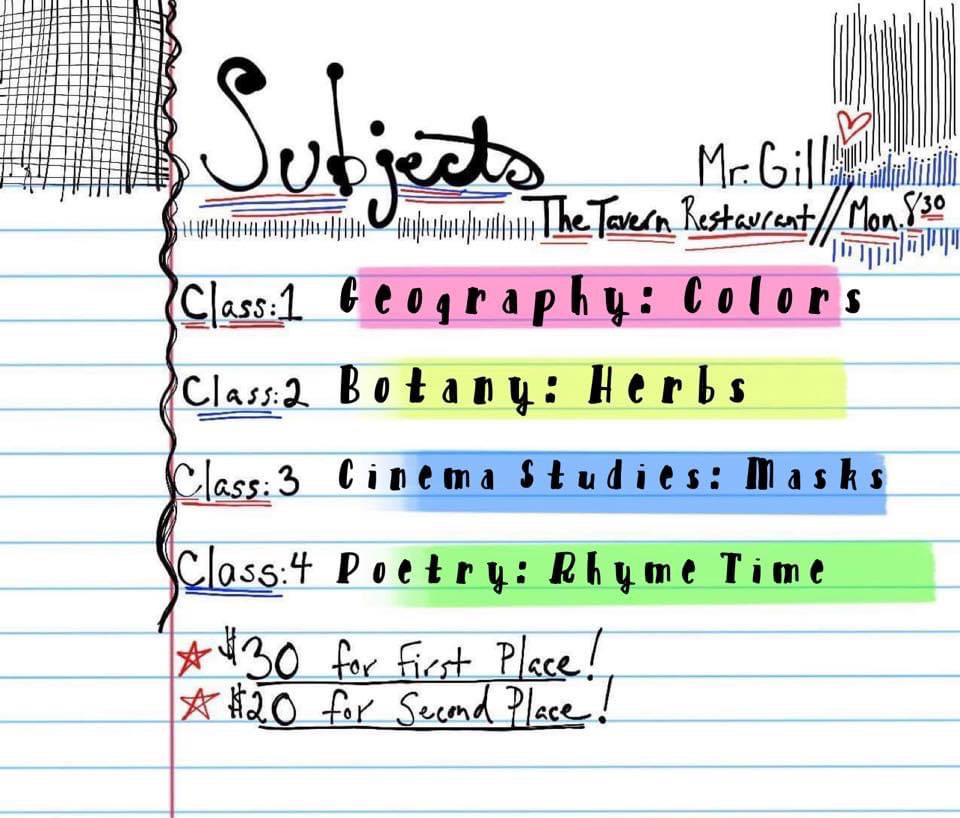 Subjects
Mr. Gill
The Tavern Restaurant // Mon. 8³⁰
Class:1 Geography: Colors
Class:2 Botany: Herbs
Class:3 Cinema Studies: Masks
Class:4 Poetry: Rhyme Time
$30 for First Place!
$20 for Second Place!